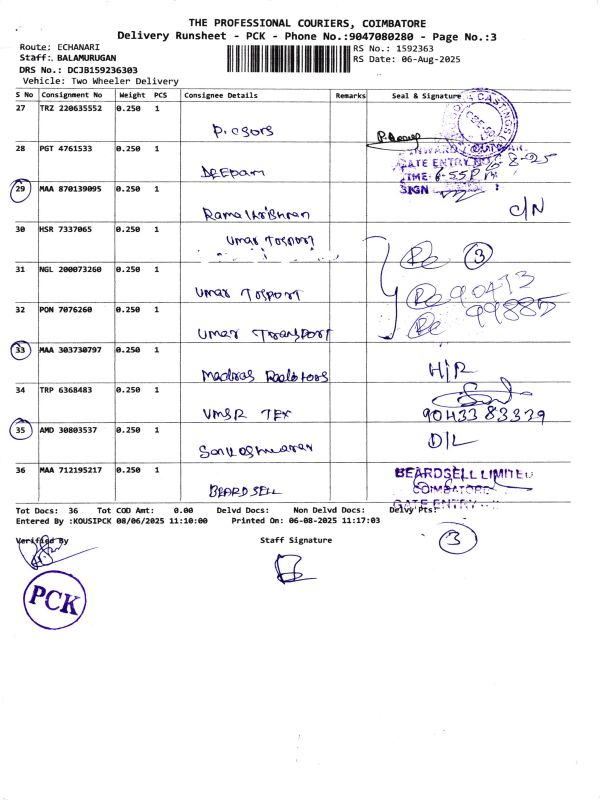 THE PROFESSIONAL COURIERS, COIMBATORE
Delivery Runsheet - PCK - Phone No.:9047080280 - Page No.:3
Route: ECHANARI
RS No.: 1592363
Staff: BALAMURUGAN
RS Date: 06-Aug-2025
DRS No.: DCJB159236303
Vehicle: Two Wheeler Delivery
S No Consignment No Weight PCS Consignee Details Remarks Seal & Signature
27 TRZ 220635552 0.250 1
28 PGT 4761533 0.250 1
DEEPAM
GATE ENTRY NO
TIME 6-55
SIGN
29 MAA 870139095 0.250 1
Ramakrishnan
C/N
30 HSR 7337065 0.250 1
Umar
3
31 NGL 200073260 0.250 1
Umar
90473
32 PON 7076260 0.250 1
Umar Transport
99885
33 MAA 303730797 0.250 1
Madras
34 TRP 6368483 0.250 1
VMSR TEX
9043383339
35 AMD 30803537 0.250 1
D/L
36 MAA 712195217 0.250 1
BEARDSELL
BEARDSELL LIMITED
COIMBATORE
GATE ENTRY
Tot Docs: 36 Tot COD Amt: 0.00 Delvd Docs: Non Delvd Docs: Delvy Pts:
Entered By :KOUSIPCK 08/06/2025 11:10:00 Printed On: 06-08-2025 11:17:03
Verified By
Staff Signature
3
PCK